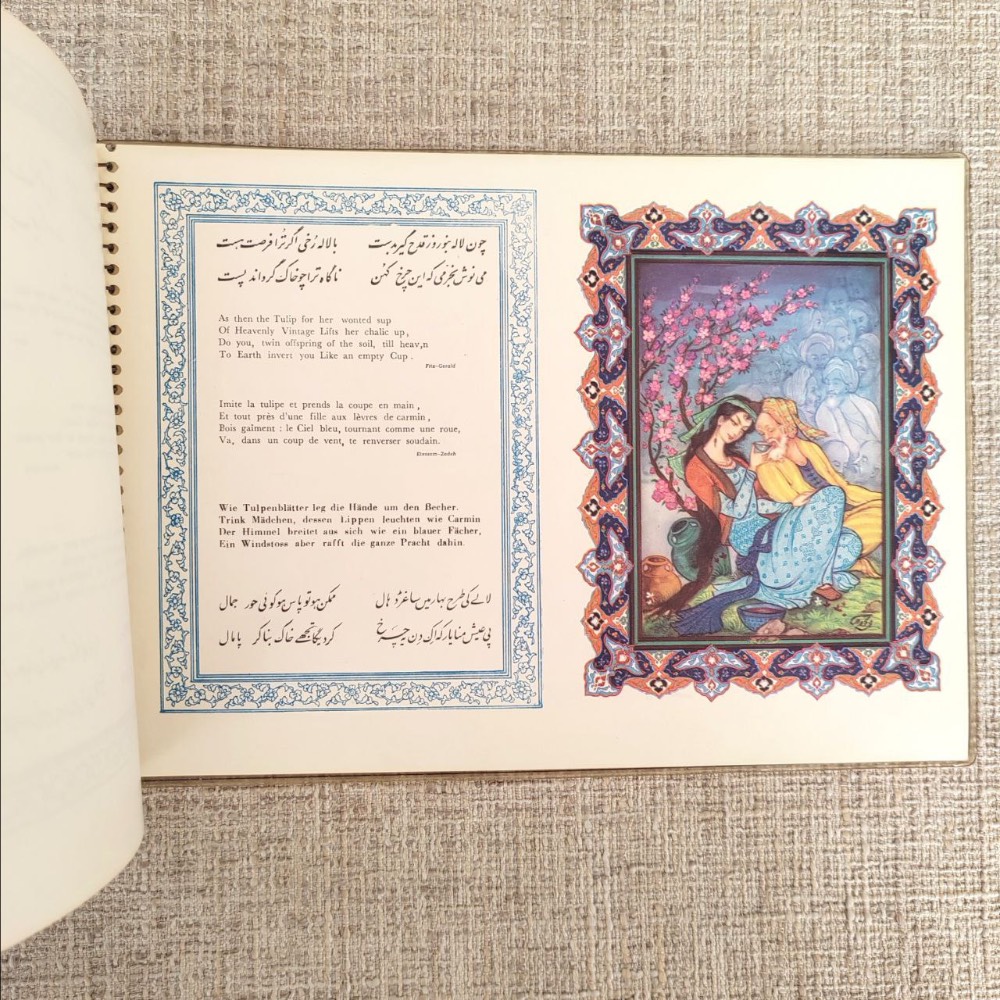 چون لاله بنوروز قدح گیر بدست با لاله رُخی اگر تُرا فرصت هست
می نوش بخرمی که این چرخ کهن ناگاه ترا چو خاک گرداند پست
As then the Tulip for her wonted sup
Of Heavenly Vintage Lifts her chalic up,
Do you, twin offspring of the soil, till heav,n
To Earth invert you Like an empty Cup .
Fitz-Gerald
Imite la tulipe et prends la coupe en main ,
Et tout près d'une fille aux lèvres de carmin,
Bois gaîment : le Ciel bleu, tournant comme une roue,
Va, dans un coup de vent, te renverser soudain.
Etessam-Zadeh
Wie Tulpenblätter leg die Hände um den Becher.
Trink Mädchen, dessen Lippen leuchten wie Carmin
Der Himmel breitet aus sich wie ein blauer Fächer,
Ein Windstoss aber rafft die ganze Pracht dahin.
لالے کی طرح بہار میں ساغر ڈھال ممکن ہو تو پاس ہو کوئی حور جمال
پی عیش منا یار کہ اک دن چرخ کر دیگا تجھے خاک بنا کر پامال